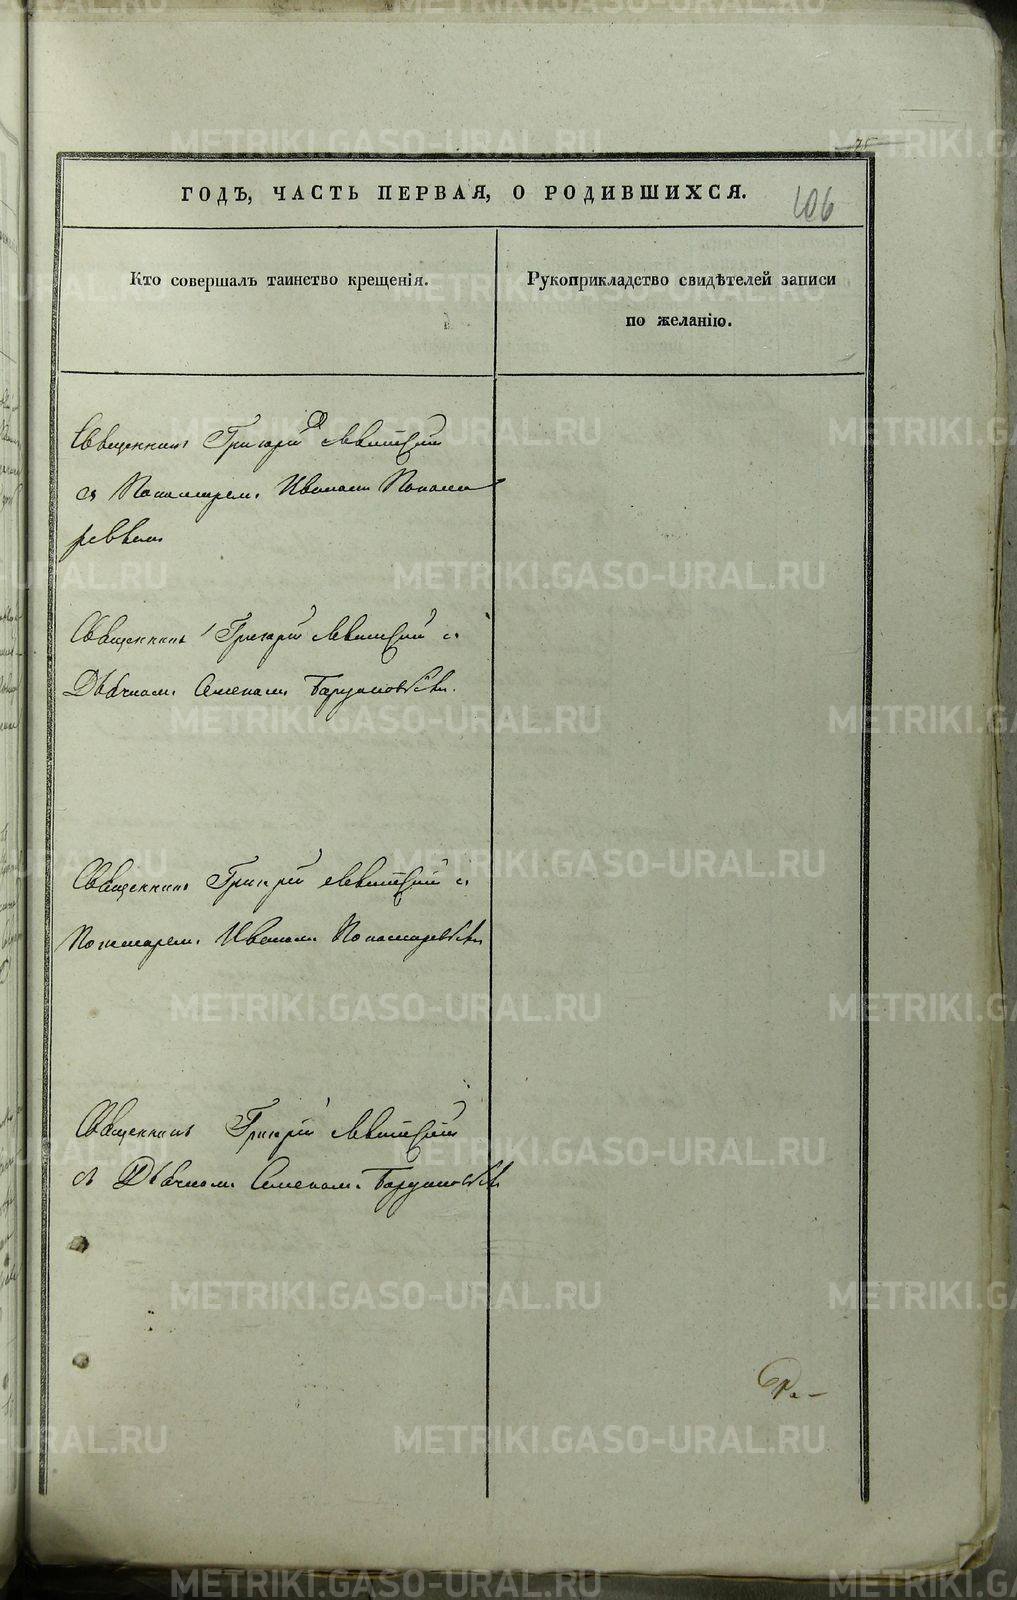 ГОДЪ, ЧАСТЬ ПЕРВАЯ, О РОДИВШИХСЯ.
106
Кто совершалъ таинство крещенія.
Рукоприкладство свидѣтелей записи
по желанію.
Священникъ Григорій Левитскій
съ Пономаремъ Иваномъ Понома
ревымъ
Священникъ Григорій Левитскій съ
Дьячкомъ Семеномъ
Священникъ Григорій Левитскій съ
Пономаремъ Иваномъ Пономаревымъ
Священникъ Григорій Левитскій
съ Дьячкомъ Семеномъ
METRIKI.GASO-URAL.RU